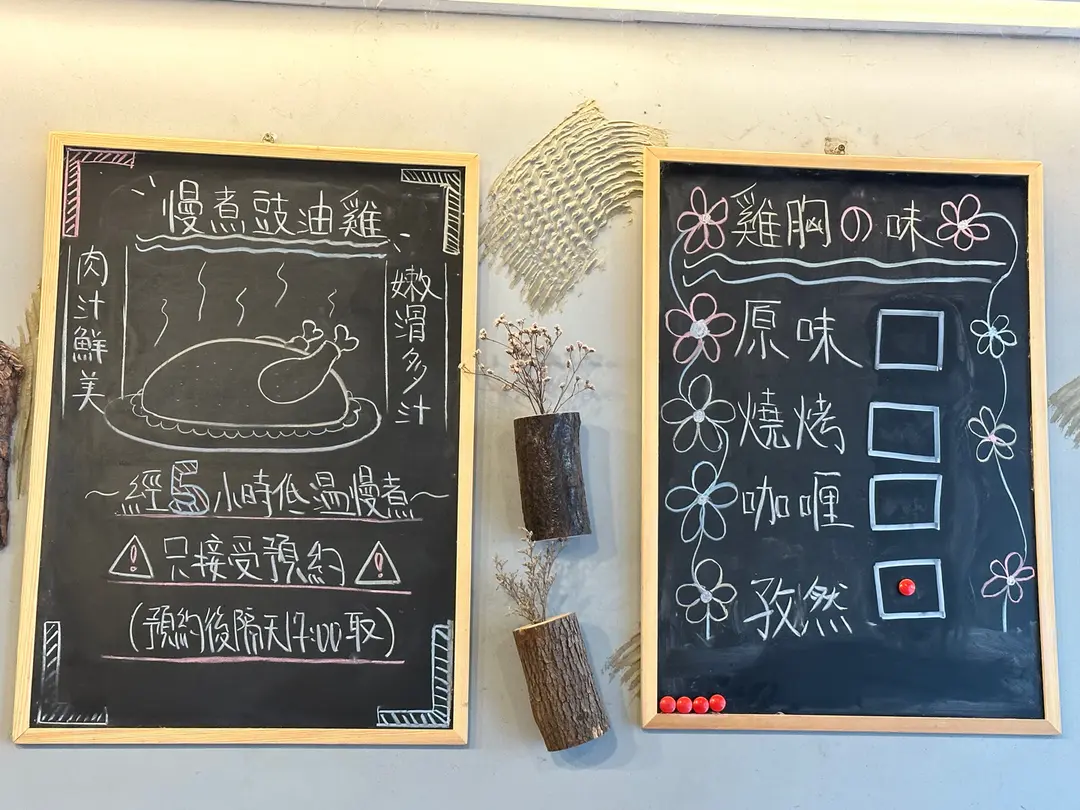 慢煮豉油雞
肉汁鮮美
嫩滑多汁
~經5小時低温慢煮~
只接受預約
(預約後隔天17:00取)
雞胸の味
原味
燒烤
咖喱
孜然